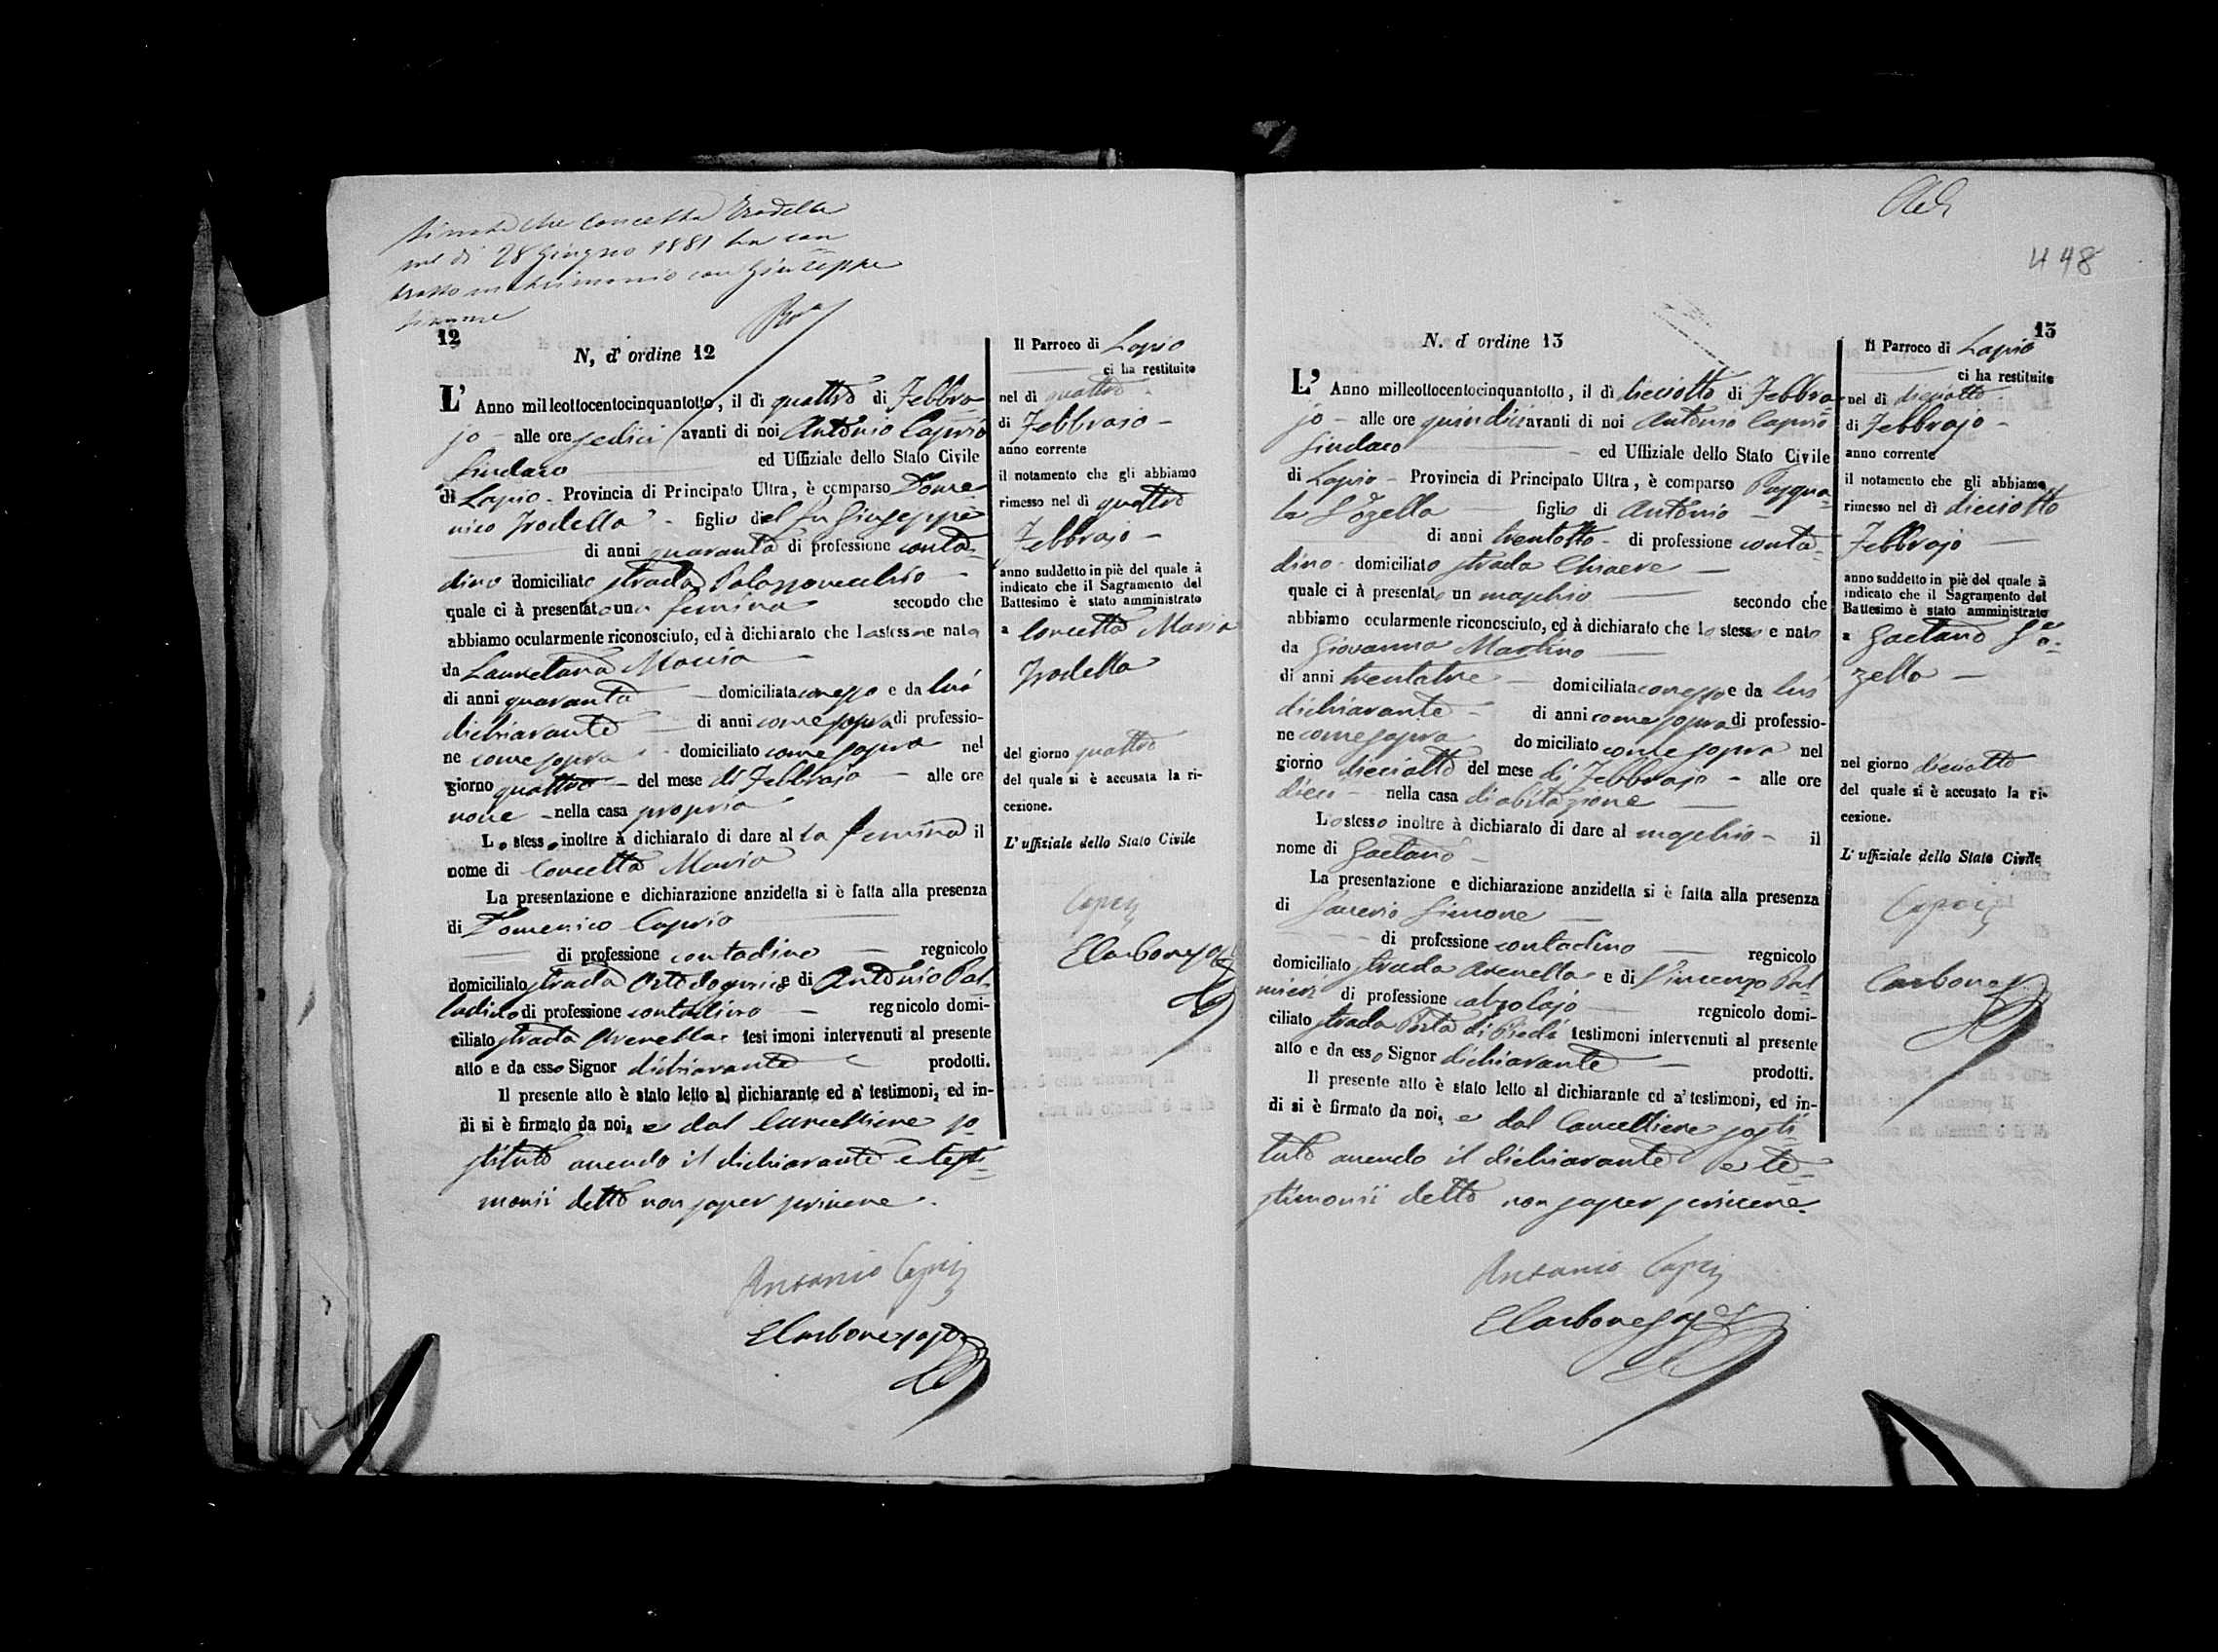 Si nota che Concetta Trodella
nel dì 28 Giugno 1881 ha con
tratto matrimonio con Giuseppe
12
N, d' ordine 12
L' Anno milleottocentocinquantotto, il dì quattro di Febbra
jo - alle ore sedici avanti di noi Antonio Caprio
Sindaco ed Uffiziale dello Stato Civile
di Lapio - Provincia di Principato Ultra, è comparso Dome
nico Trodella - figlio del fu Giuseppe
di anni quaranta di professione conta-
dino domiciliato strada Palazzovecchio -
quale ci à presentato una femina secondo che
abbiamo ocularmente riconosciuto, ed à dichiarato che la stessa e nata
da Lauretana Maccia -
di anni quaranta - domiciliata con esso e da lui
dichiarante - di anni come sopra di professio-
ne come sopra - domiciliato come sopra nel
giorno quattro - del mese di Febbrajo - alle ore
nove - nella casa propria
Lo stesso inoltre à dichiarato di dare alla femina il
nome di Concetta Maria
La presentazione e dichiarazione anzidetta si è fatta alla presenza
di Domenico Caprio
di professione contadino - regnicolo
domiciliato strada e di Antonio Pal-
ladino di professione contadino - regnicolo domi-
ciliato strada Arenella testimoni intervenuti al presente
atto e da esso Signor dichiarante prodotti.
Il presente atto è stato letto al dichiarante ed a' testimoni, ed in-
di si è firmato da noi, e dal Cancelliere so
stituto avendo il dichiarante e testi-
monii detto non saper scrivere.
Antonio Caprio
ECarbone sosto
Il Parroco di Lapio
ci ha restituito
nel dì quattro
di Febbraio -
anno corrente
il notamento che gli abbiamo
rimesso nel dì quattro
Febbrajo -
anno suddetto in piè del quale à
indicato che il Sagramento del
Battesimo è stato amministrato
a Concetta Maria
Trodella
del giorno quattro
del quale si è accusata la ri-
cezione.
L' uffiziale dello Stato Civile
Caprio
ECarbone sosto
448
13
N. d' ordine 13
L' Anno milleottocentocinquantotto, il dì dieciotto di Febbra
jo - alle ore quindici avanti di noi Antonio Caprio
Sindaco - ed Uffiziale dello Stato Civile
di Lapio - Provincia di Principato Ultra, è comparso Pasqua-
le Lozella figlio di Antonio -
di anni trentotto - di professione conta-
dino - domiciliato strada Chiaere -
quale ci à presentato un maschio secondo che
abbiamo ocularmente riconosciuto, ed à dichiarato che lo stesso e nato
da Giovanna Martino
di anni trentatre - domiciliata con esso e da lui
dichiarante - di anni come sopra di professio-
ne come sopra domiciliato come sopra nel
giorno dieciotto del mese di Febbrajo - alle ore
dieci - nella casa di abitazione
Lo stesso inoltre à dichiarato di dare al maschio - il
nome di Gaetano -
La presentazione e dichiarazione anzidetta si è fatta alla presenza
di Saverio Simone
di professione contadino regnicolo
domiciliato strada Arenella e di Vincenzo Pal
mieri di professione calzolajo regnicolo domi-
ciliato strada Porta di Piedi testimoni intervenuti al presente
atto e da esso Signor dichiarante - prodotti.
Il presente atto è stato letto al dichiarante ed a' testimoni, ed in-
di si è firmato da noi, e dal Cancelliere sosti-
tuto avendo il dichiarante e te-
stimonii detto non saper scrivere.
Antonio Caprio
ECarbone sosto
Il Parroco di Lapio
ci ha restituito
nel dì dieciotto
di Febbrajo -
anno corrente
il notamento che gli abbiamo
rimesso nel dì dieciotto
Febbrajo
anno suddetto in piè del quale à
indicato che il Sagramento del
Battesimo è stato amministrato
a Gaetano Lo-
zella -
nel giorno dieciotto
del quale si è accusato la ri-
cezione.
L' uffiziale dello Stato Civile
Caprio
Carbone